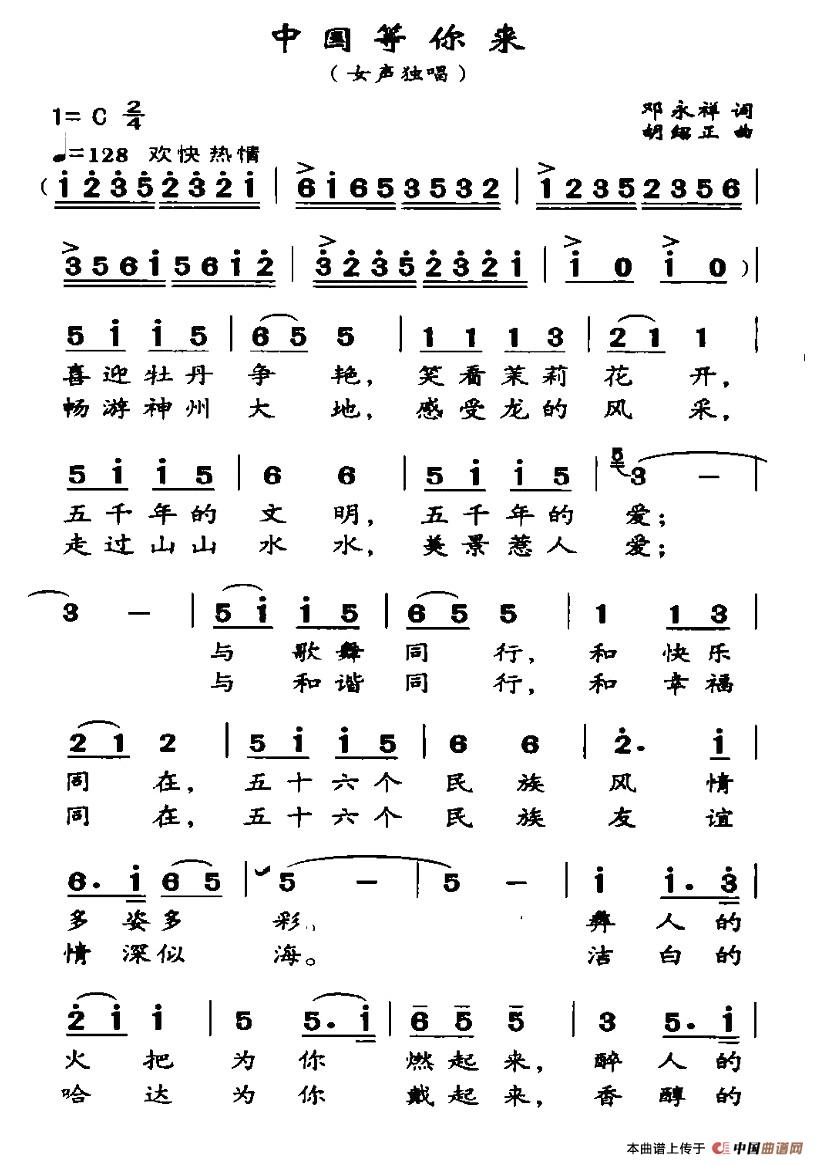 中国等你来
（女声独唱）
1= C 2/4
邓永祥 词
♩=128 欢快热情
胡绍正 曲
( i̇ 2̇ 3̇ 5̇ 2̇ 3̇ 2̇ i̇ | 6 i̇ 6 5 3 5 3 2 | 1 2 3 5 2 3 5 6 |
3 5 6 i̇ 5 6 i̇ 2̇ | 3̇ 2̇ 3̇ 5̇ 2̇ 3̇ 2̇ i̇ | i̇ 0 i̇ 0 ) |
5 i̇ i̇ 5 | 6 5 5 | 1 1 1 3 | 2 1 1 |
喜迎牡丹争艳，笑看茉莉花开，
畅游神州大地，感受龙的风采，
5 i̇ i̇ 5 | 6 6 | 5 i̇ i̇ 5 | 5 3 - |
五千年的文明，五千年的爱；
走过山山水水，美景惹人爱；
3 - | 5 i̇ i̇ 5 | 6 5 5 | 1 1 3 |
与歌舞同行，和快乐
与和谐同行，和幸福
2 1 2 | 5 i̇ i̇ 5 | 6 6 | 2̇. i̇ |
同在，五十六个民族风情
同在，五十六个民族友谊
6. i̇ 6 5 | 5 - | 5 - | i̇ i̇. 3̇ |
多姿多彩、彝人的
情深似海。洁白的
2̇ i̇ i̇ | 5 5. i̇ | 6 5 5 | 3 5. i̇ |
火把为你燃起来，醉人的
哈达为你戴起来，香醇的
本曲谱上传于 中国曲谱网